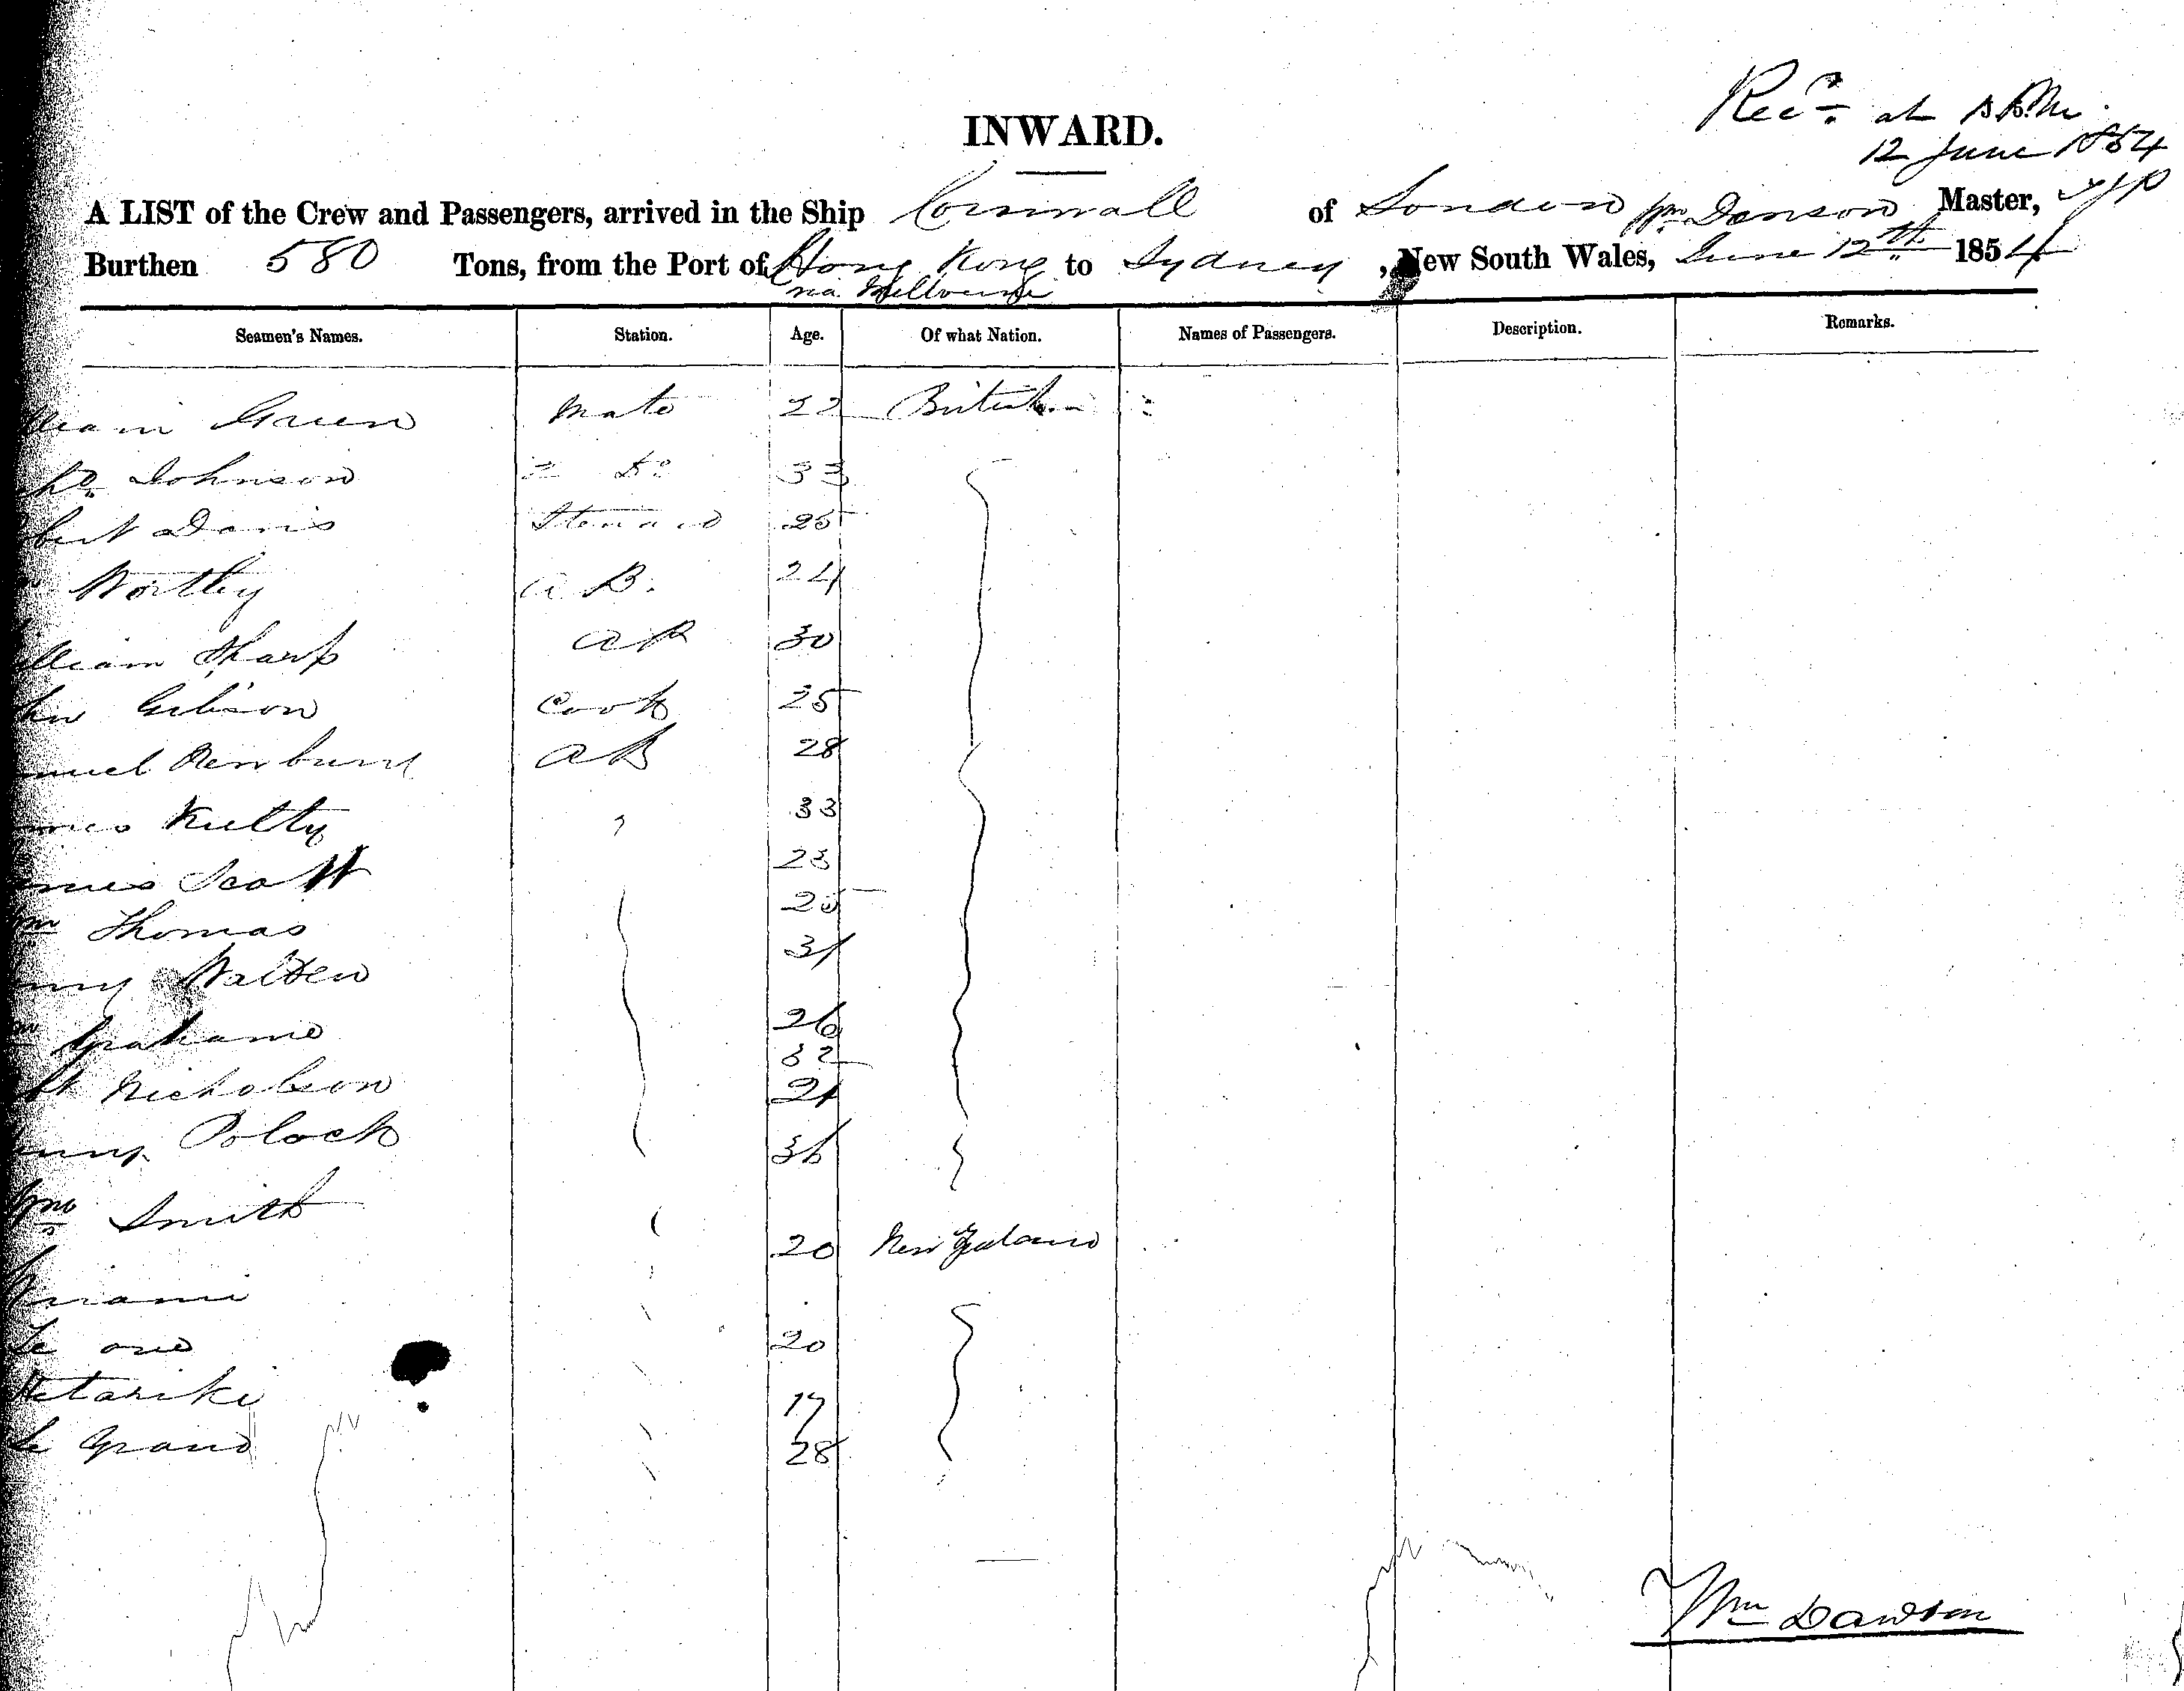 Rec^d. at 1 P.M.
INWARD.
12 June 1854
A LIST of the Crew and Passengers, arrived in the Ship Cornwall of London Wm Dawson Master,
Burthen 580 Tons, from the Port of Hong Kong to Sydney, New South Wales, June 12th 1854
via Melbourne
Seamen's Names. Station. Age. Of what Nation. Names of Passengers. Description. Remarks.
lliam Green Mate 22 British
Johnson 2 Do 33
bert Davis Steward 25
Wortley A B. 24
illiam Sharp AB 30
hn Gibson Cook 25
muel Newburn AB 28
mes Kultty 33
ames Scott 23
Wm Thomas 25
nry Walten 31
m Grahame 26
bt Nicholson 32
enry Polock 21
Jno Smith 36
20 New Zealand
Te one 20
Hetariki 17
Le Grand 28
Wm Dawson